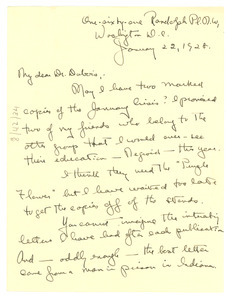 One-sixty-one Randolph Pl. N.W.
Washington D.C.
January 22, 1928.
My dear Dr. Dubois,
May I have two marked
copies of the January Crisis? I promised
two of my friends who belong to the
other group that I would over-see
their education - Negroid - this year.
I think they need the "Purple
Flower" but I have waited too late
to get the copies off of the stands.
You cannot imagine the interesting
letters I have had after each publication
And - oddly enough - the best letter
came from a man in prison in Indiana